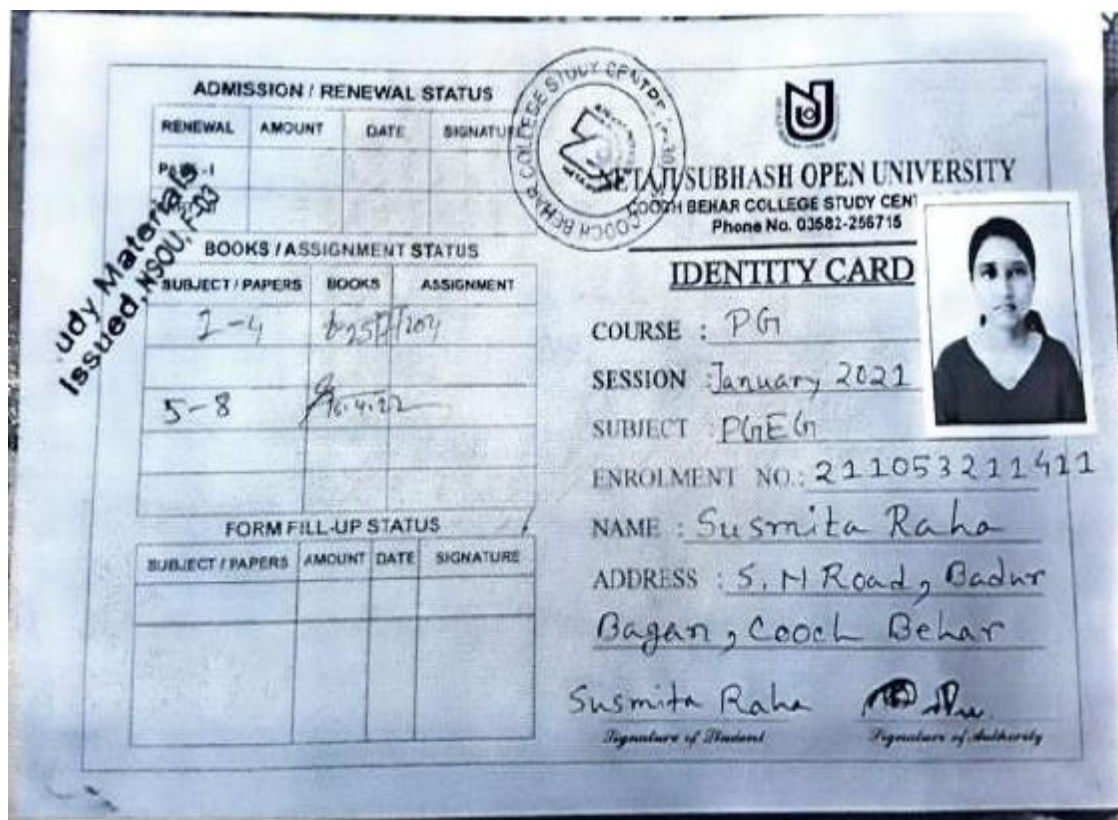 ADMISSION / RENEWAL STATUS
RENEWAL AMOUNT DATE SIGNATURE
udy Materials
Issued, NSOU, F-03
BOOKS / ASSIGNMENT STATUS
SUBJECT / PAPERS BOOKS ASSIGNMENT
1-4
5-8 16.4.22
FORM FILL-UP STATUS
SUBJECT / PAPERS AMOUNT DATE SIGNATURE
COOCH BEHAR COLLEGE STUDY CENTRE
NETAJI SUBHASH OPEN UNIVERSITY
COOCH BEHAR COLLEGE STUDY CENT
Phone No. 03582-256715
IDENTITY CARD
COURSE : PG
SESSION : January 2021
SUBJECT : PGEG
ENROLMENT NO.: 211053211411
NAME : Susmita Raha
ADDRESS : S. N Road, Badur
Bagan, Cooch Behar
Susmita Raha
Signature of Student Signature of Authority